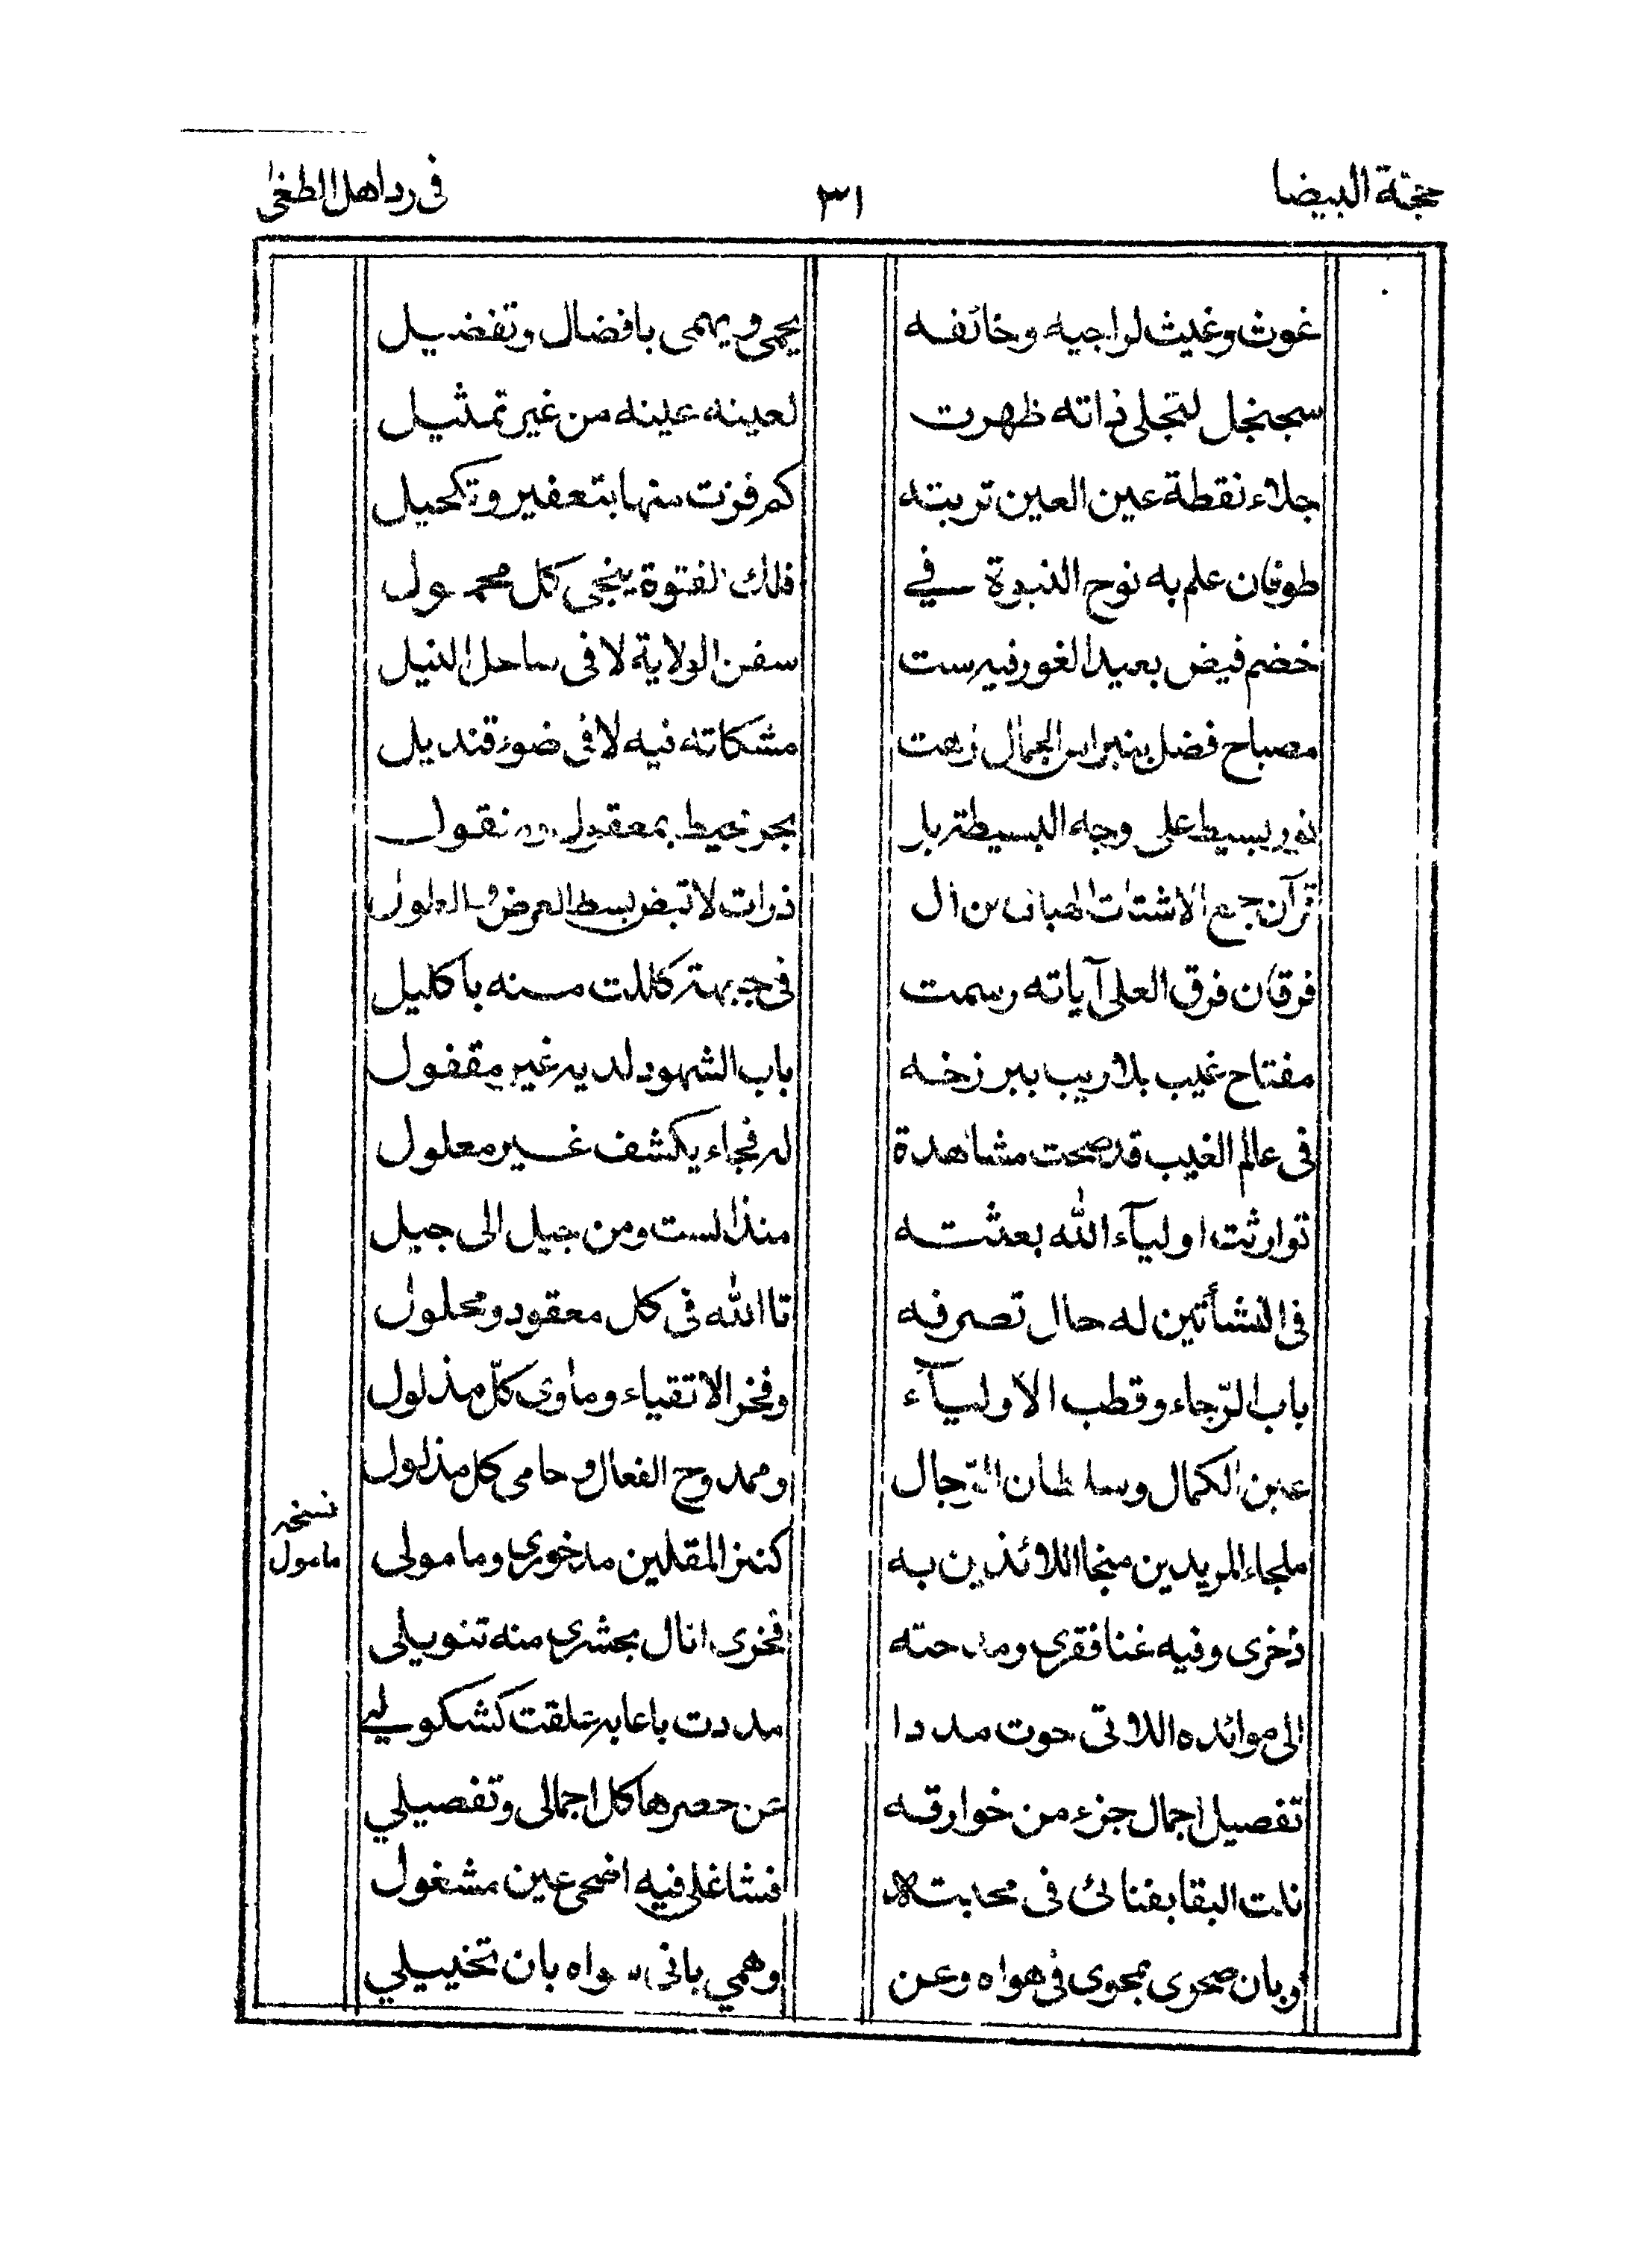 حجتة البيضا ٣١ في رد اهل الطغى
غوث وغيث لراجيه وخائفه يحمى ويهمى بافضال وتفضيل
سجنجل لتجلى ذاته ظهرت لعينه عينه من غير تمثيل
جلاء نقطة عين العين تربته كم فزت منها بتعفير وتكحيل
طوفان علم به نوح النبوة في فلك الفتوة ينجى كل محمول
خضم فيض بعيد الغور فيه رست سفن الولاية لا فى ساحل النيل
مصباح فضل بنبراس الجمال زهت مشكاته فيه لا فى ضوء قنديل
نور بسيط على وجه البسيطة بل بحر محيط بمعقول ومنقول
قرآن جمع الاشتات الهبا من ال ذرات لا قبض بسط العرض والطول
فرقان فرق العلى آياته رسمت فى جبهة كللت منه باكليل
مفتاح غيب بلا ريب ببرزخه باب الشهود لديه غير مقفول
فى عالم الغيب قد صحت مشاهدة له فجاء يكشف غير معلول
توارثت اولياء الله بعثته منذ الست ومن جيل الى جيل
فى النشأتين له حال تصرفه تا الله فى كل معقود ومحلول
باب الرّجاء وقطب الأولياء وفخر الاتقياء وماوى كلّ مذلول
عين الكمال وسلطان الرجال وممدوح الفعال وحامى كل مذلول
ملجاء المريدين منجا اللائذين به كنز المقلين مدخورى ومامولى
نسخه مامول
ذخرى وفيه غنا فقرى ومدحته فخرى انال بحشرى منه تنويلى
الى موائده اللاتى حوت مددا مددت باعا به علقت كشكولي
تفصيل اجمال جزء من خوارقه عن حصرها كل اجمالى وتفصيلي
نلت البقا بفنائ فى محبته فشاغلى فيه اضحى عين مشغول
وبان صحوى بمحوى فى هواه وعن وهمي بانى سواه بان تخييلي